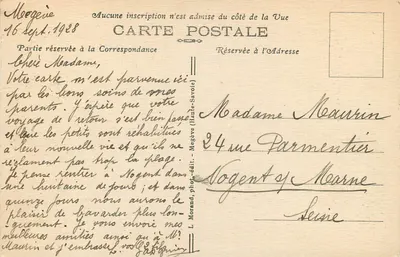 Mogève
16 sept. 1928
Aucune inscription n'est admise du côté de la Vue
CARTE POSTALE
Partie réservée à la Correspondance
Réservée à l'Adresse
Chère Madame,
Votre carte m'est parvenue ici
par les bons soins de mes
parents. J'espère que votre
voyage de retour s'est bien passé
et que les petits sont réhabitués
à leur nouvelle vie et qu'ils ne
réclament pas trop la plage.
Je pense rentrer à Nogent dans
une huitaine de jours, et dans
quinze jours, nous aurons le
plaisir de bavarder plus lon-
guement. Je vous envoie mes
meilleures amitiés ainsi qu'à Mr
Maurin et j'embrasse vos 2
L. Morand, phot.-édit. - Megève (Haute-Savoie)
Madame Maurin
24 rue Parmentier
Nogent s/ Marne
Seine